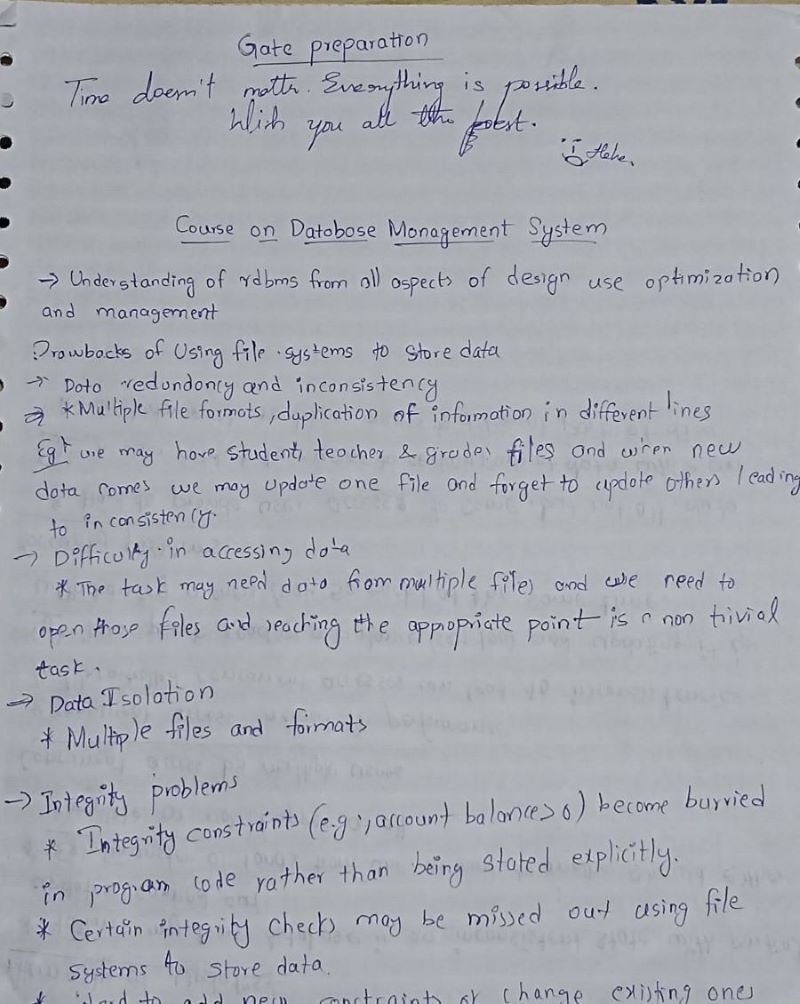 Gate preparation
Time doesn't matter. Everything is possible.
Wish you all the best.
Course on Database Management System
→ Understanding of rdbms from all aspects of design use optimization
and management
Drawbacks of Using file systems to store data
→ Data redundancy and inconsistency
→ * Multiple file formats, duplication of information in different lines
Eg: we may have student, teacher & grades files and when new
data comes we may update one file and forget to update others leading
to inconsistency.
→ Difficulty in accessing data
* The task may need data from multiple files and we need to
open those files and reaching the appropriate point is a non trivial
task.
→ Data Isolation
* Multiple files and formats
→ Integrity problems
* Integrity constraints (e.g:, account balance > 0) become burried
in program code rather than being stated explicitly.
* Certain integrity checks may be missed out using file
systems to store data.
* Hard to add new constraints or change existing ones